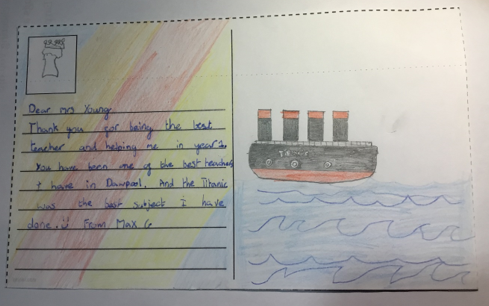 Dear mrs Young
Thank you for being the best
teacher and helping me in year 2
You have been one of the best teachers
I have in Dawpool. And the Titanic
was the best subject i have
done. From Max G
Titanic